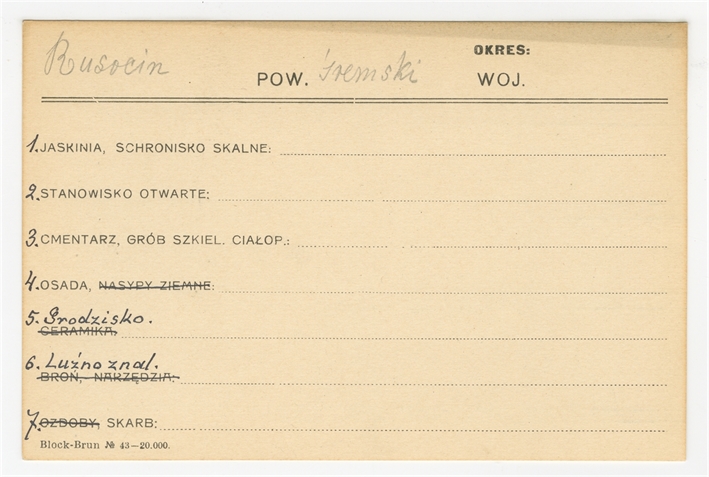 OKRES:
Rusocin POW. śremski WOJ.
1. JASKINIA, SCHRONISKO SKALNE:
2. STANOWISKO OTWARTE:
3. CMENTARZ, GRÓB SZKIEL. CIAŁOP.:
4. OSADA, NASYPY ZIEMNE:
5. Grodzisko.
CERAMIKA:
6. Luźno znal.
BROŃ, NARZĘDZIA:
7. OZDOBY, SKARB:
Block-Brun № 43—20.000.